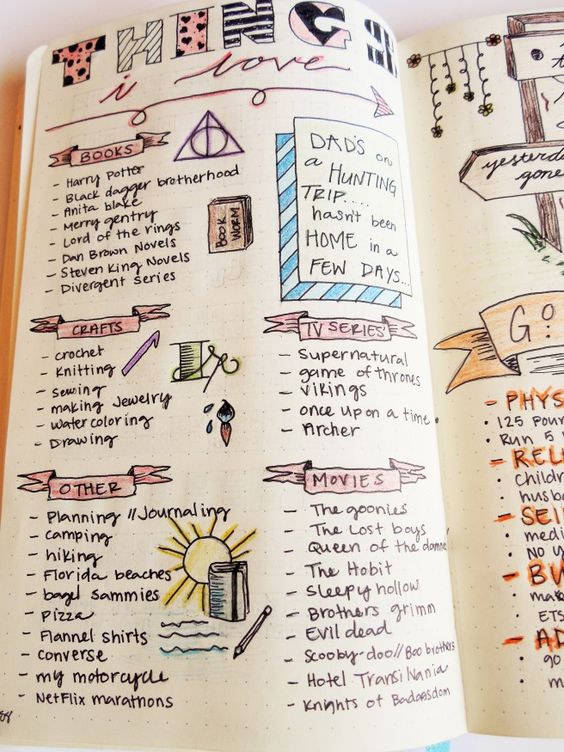 THINGS
i love
BOOKS
- Harry Potter
- Black dagger brotherhood
- Anita blake
- Merry gentry
- Lord of the rings
- Dan Brown Novels
- Steven King Novels
- Divergent Series
BOOK
WORM
DAD'S on
a HUNTING
TRIP....
hasn't been
HOME in a
FEW DAYS...
CRAFTS
- crochet
- knitting
- sewing
- making Jewelry
- watercoloring
- Drawing
TV SERIES'
- Supernatural
- game of thrones
- vikings
- once upon a time
- Archer
OTHER
- Planning // Journaling
- camping
- hiking
- Florida beaches
- bagel sammies
- pizza
- Flannel shirts
- converse
- my motorcycle
- NetFlix marathons
MOVIES
- The goonies
- The Lost boys
- Queen of the damne
- The Hobit
- Sleepy hollow
- Brothers grimm
- Evil dead
- Scooby-doo // Boo brothers
- Hotel Transilvania
- Knights of Badassdom
yesterda
gone
GO
- PHYS
• 125 pour
• Run 5
- REL
• Childr
• husb
- SE
• medi
• NO
- BU
• mak
ETS
- AD
• 90